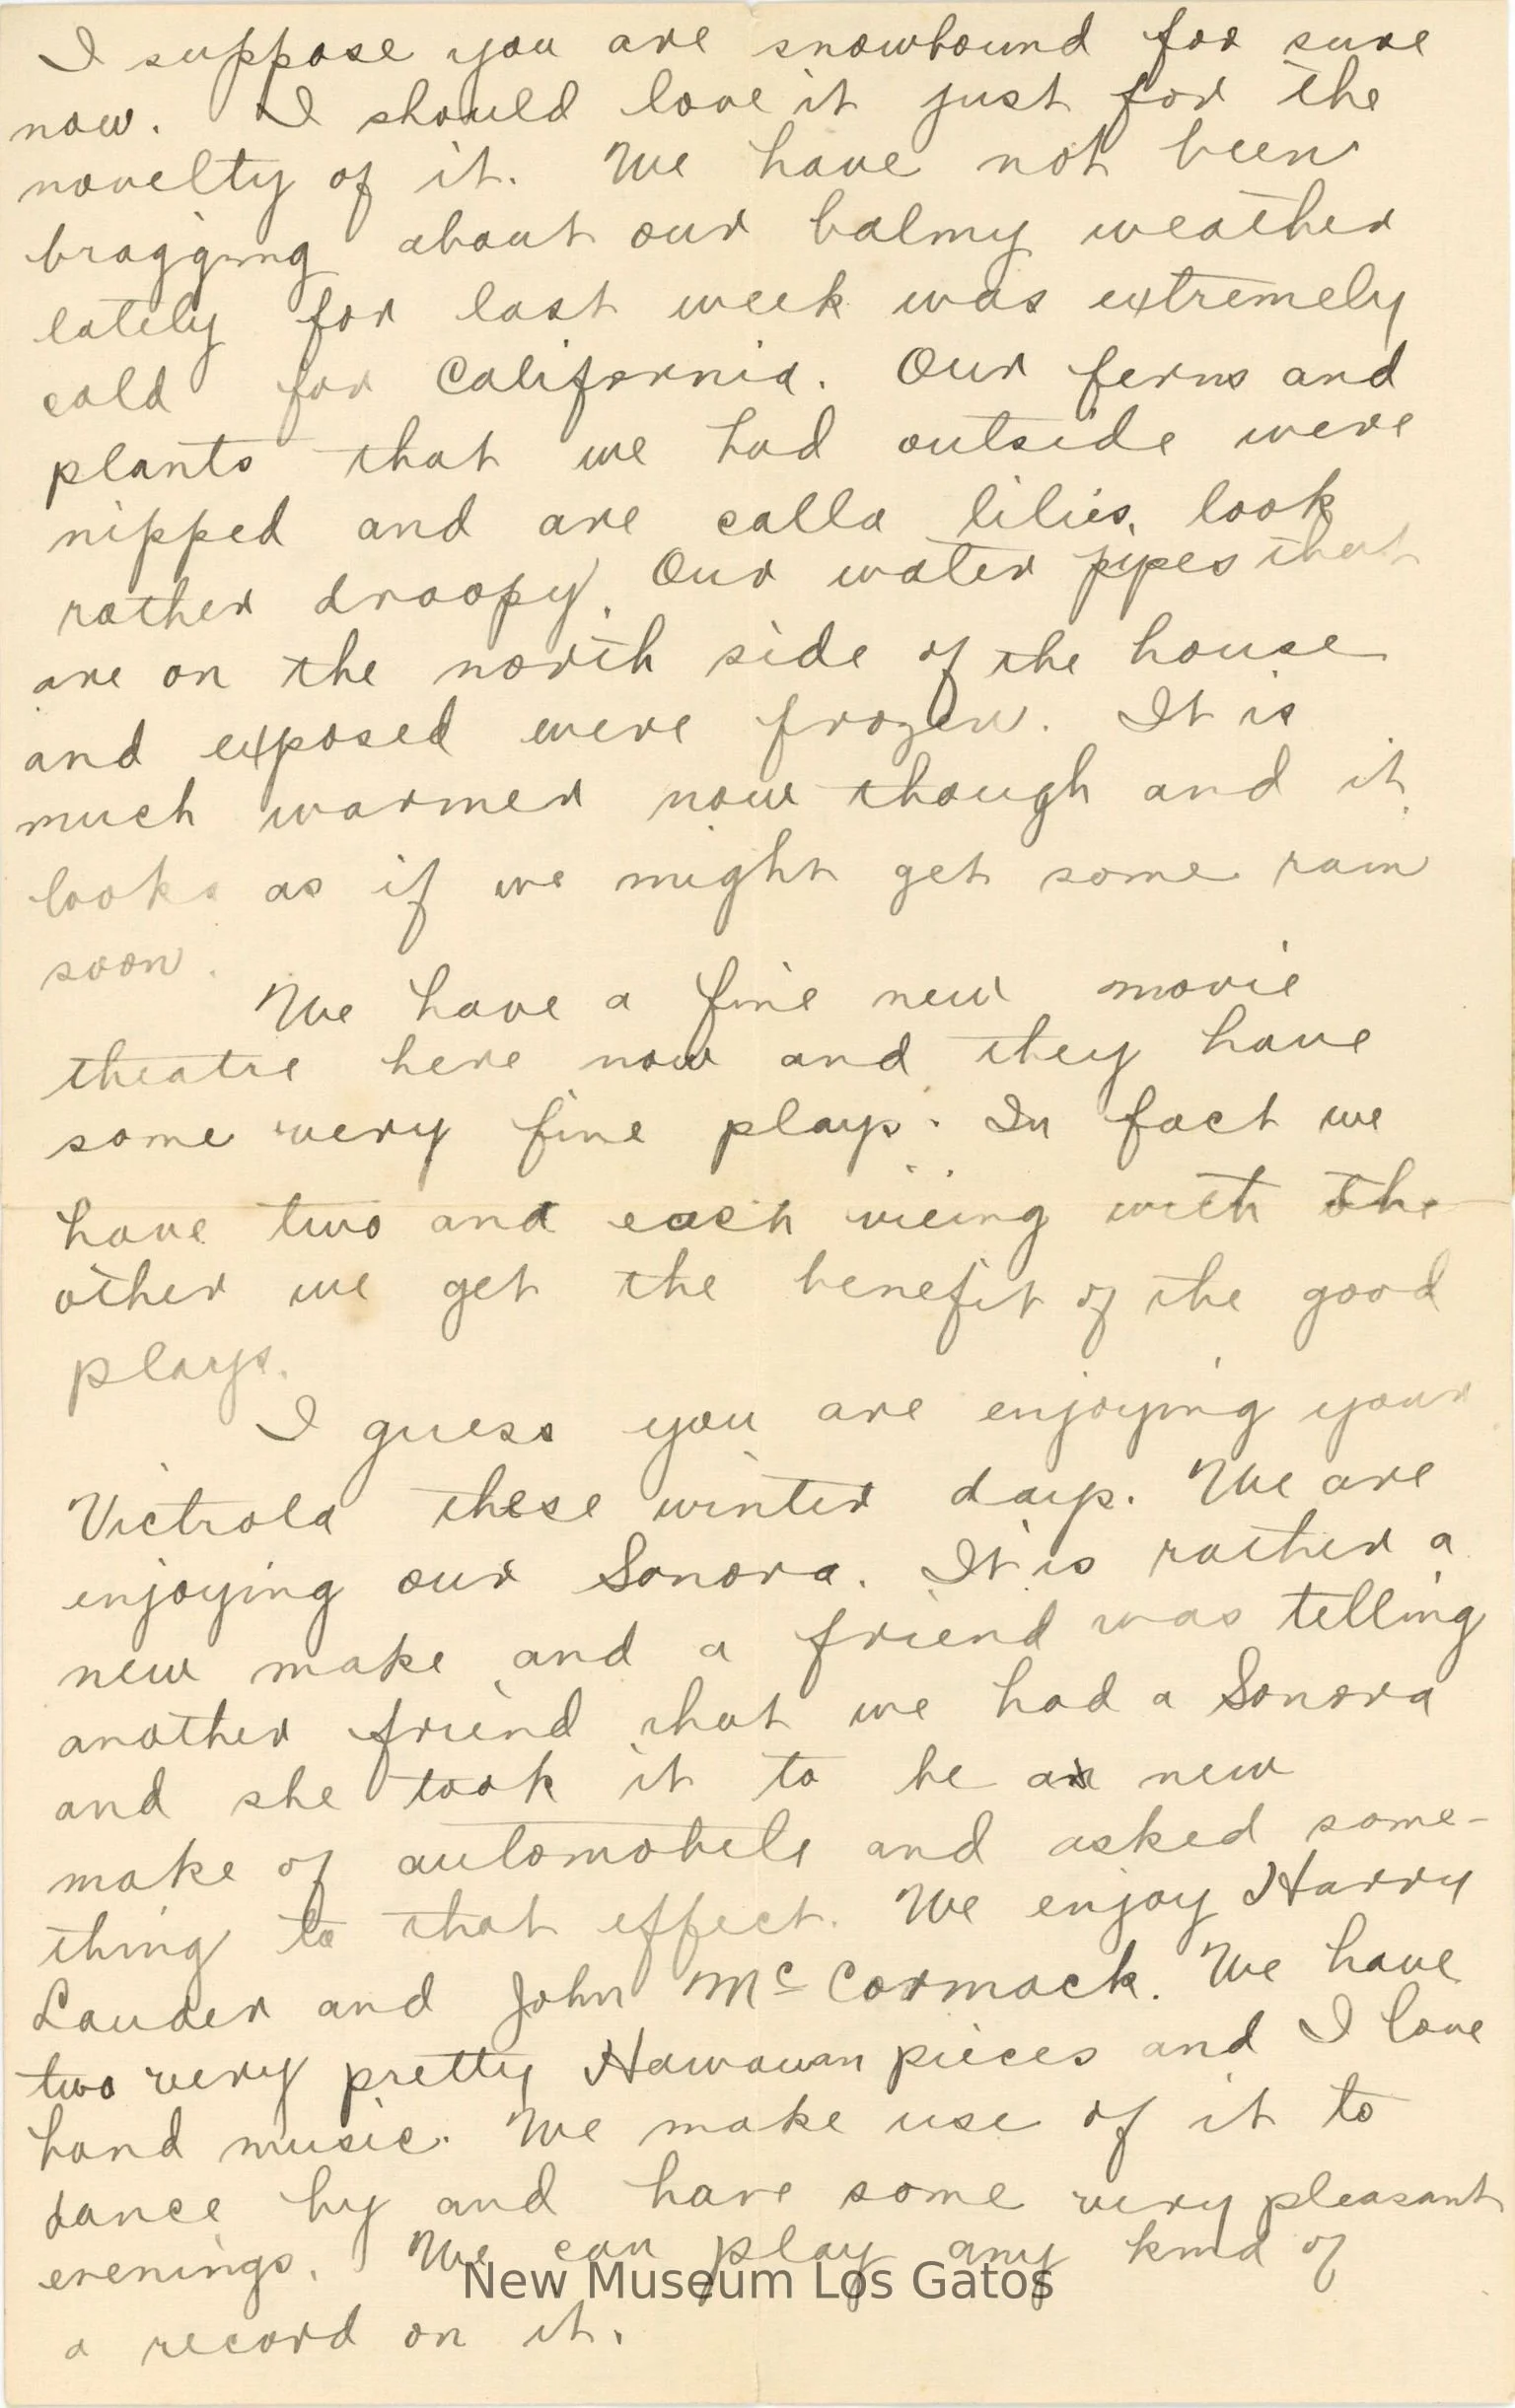 I suppose you are snowbound for sure
now. I should love it just for the
novelty of it. We have not been
bragging about our balmy weather
lately for last week was extremely
cold for California. Our ferns and
plants that we had outside were
nipped and are calla lilies, look
rather droopy. Our water pipes that
are on the north side of the house
and exposed were frozen. It is
much warmer now though and it
looks as if we might get some rain
soon.
We have a fine new movie
theatre here now and they have
some very fine plays. In fact we
have two and each vieing with the
other we get the benefit of the good
plays.
I guess you are enjoying your
Victrola these winter days. We are
enjoying our Sonora. It is rather a
new make and a friend was telling
another friend that we had a Sonora
and she took it to be a new
make of automobile and asked some-
thing to that effect. We enjoy Harry
Lauder and John McCormack. We have
two very pretty Hawauan pieces and I love
band music. We make use of it to
dance by and have some very pleasant
evenings. We can play any kind of
New Museum Los Gatos
a record on it.